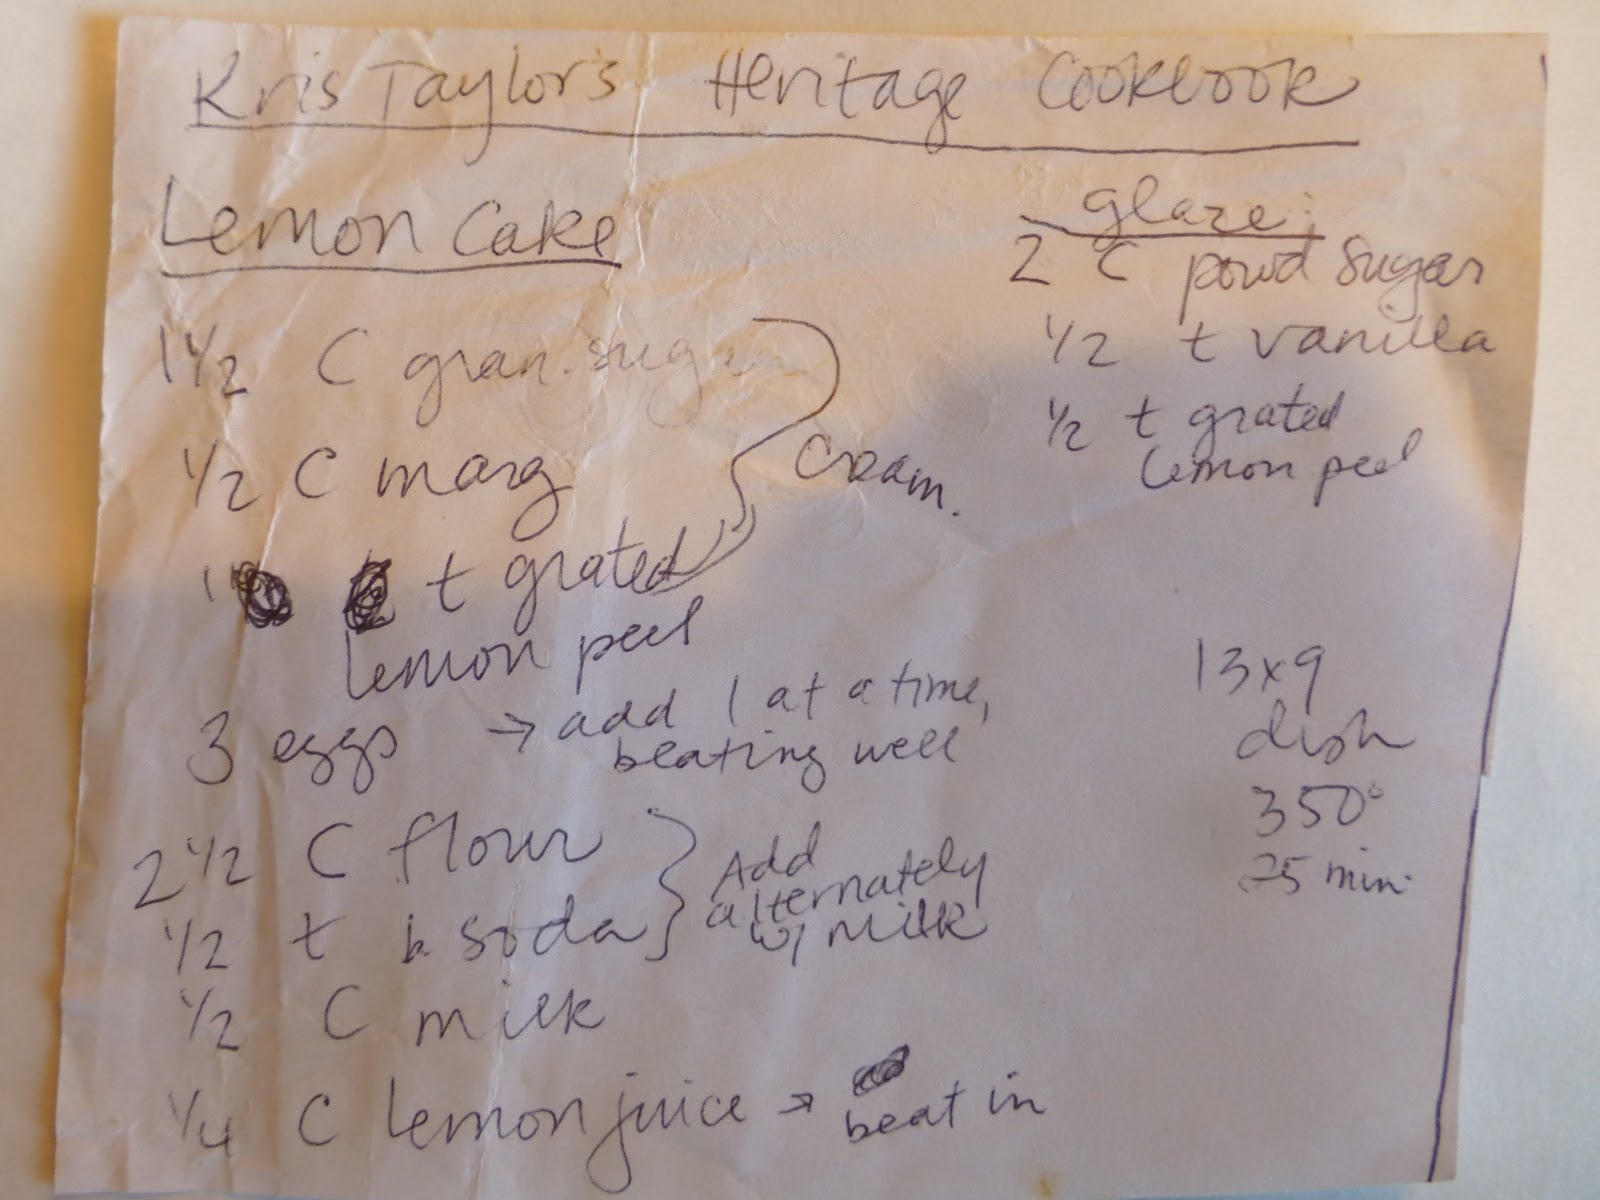 Kris Taylor's Heritage Cookbook
Lemon Cake
1 1/2 C gran. sugar
1/2 C marg
Cream.
1 t grated
lemon peel
3 eggs → add 1 at a time,
beating well
2 1/2 C flour
1/2 t b. soda
Add
alternately
w/ milk
1/2 C milk
1/4 C lemon juice → beat in
glaze:
2 C powd sugar
1/2 t vanilla
1/2 t grated
lemon peel
13x9
dish
350°
25 min.